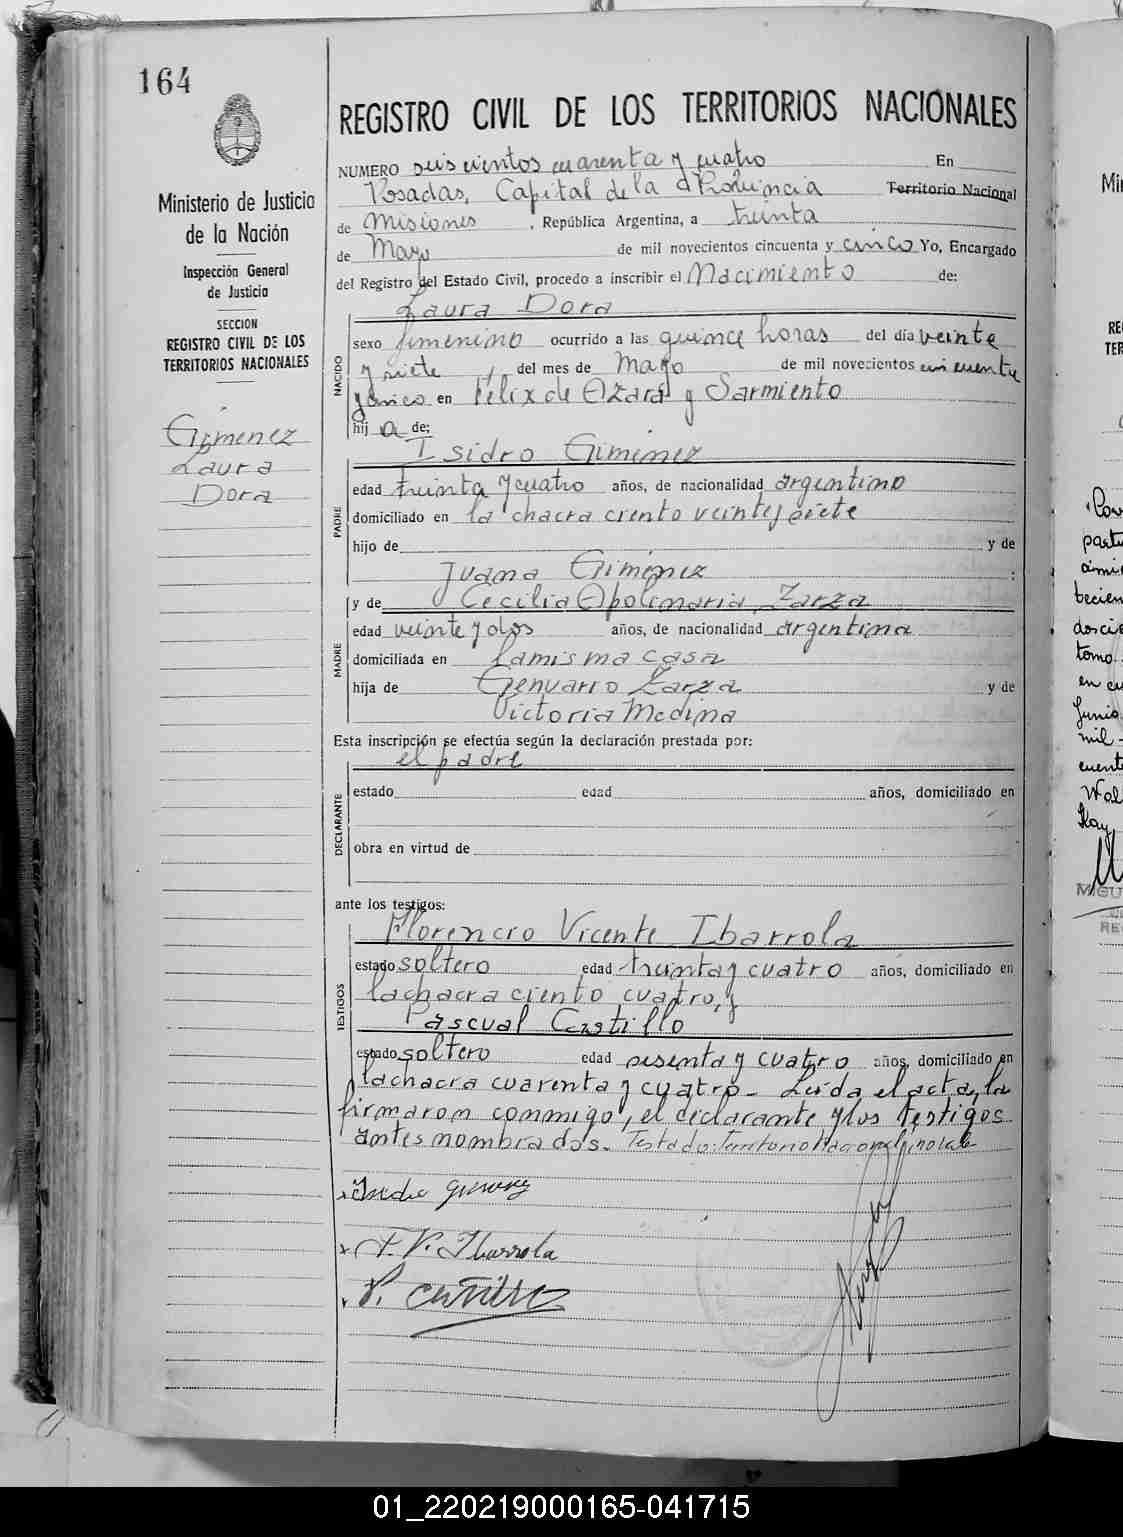 164
REGISTRO CIVIL DE LOS TERRITORIOS NACIONALES
Ministerio de Justicia
de la Nación
Inspección General
de Justicia
SECCION
REGISTRO CIVIL DE LOS
TERRITORIOS NACIONALES
Gimenez
Laura
Dora
NUMERO seiscientos cuarenta y cuatro En
Posadas, Capital de la Provincia Territorio Nacional
de Misiones, República Argentina, a treinta
de Mayo de mil novecientos cincuenta y cinco Yo, Encargado
del Registro del Estado Civil, procedo a inscribir el Nacimiento de:
Laura Dora
NACIDO
sexo femenino ocurrido a las quince horas del día veinte
y siete, del mes de Mayo de mil novecientos cincuenta
y cinco en Félix de Azara y Sarmiento
hij a de:
Isidro Gimenez
PADRE
edad treinta y cuatro años, de nacionalidad argentino
domiciliado en la chacra ciento veintisiete
hijo de y de
Juana Gimenez :
y de Cecilia Apolinaria Zarza
MADRE
edad veinte y dos años, de nacionalidad argentina
domiciliada en La misma casa
hija de Genuario Zarza y de
Victoria Medina
Esta inscripción se efectúa según la declaración prestada por:
el padre
DECLARANTE
estado edad años, domiciliado en
obra en virtud de
ante los testigos:
Florencio Vicente Ibarrola
TESTIGOS
estado soltero edad treinta y cuatro años, domiciliado en
la chacra ciento cuatro, y
Pascual Castillo
estado soltero edad sesenta y cuatro años, domiciliado en
la chacra cuarenta y cuatro- Leida el acta, la
firmaron conmigo, el declarante y los testigos
antes nombrados. Testado: Territorio Nacional; no vale
Isidro Gimenez
F. V. Ibarrola
P. Castillo
parte
tomo
en
Junio
mil
MIGU
RE
01_220219000165-041715